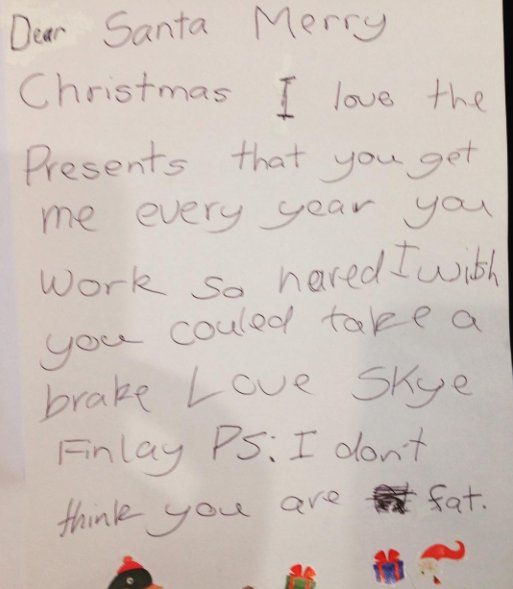 Dear Santa Merry
Christmas I love the
Presents that you get
me every year you
work so hared I wish
you couled take a
brake Love Skye
Finlay PS: I don't
think you are fat.